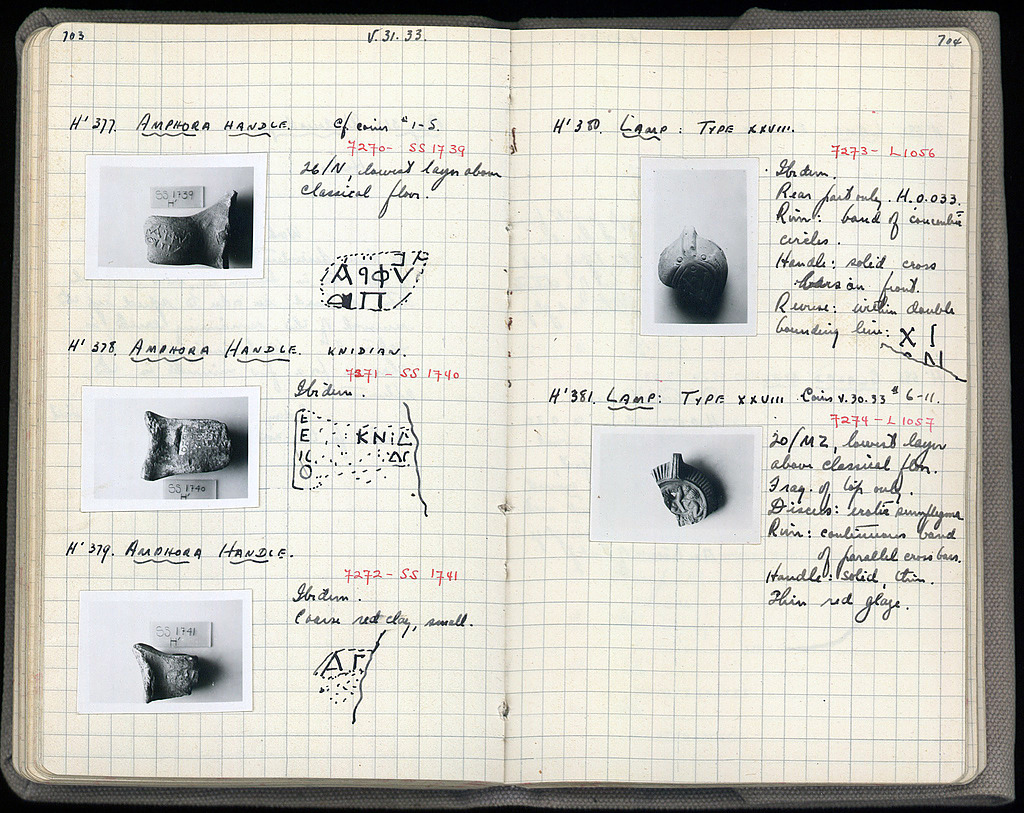 703
V.31.33.
H' 377. AMPHORA HANDLE. Cf. coins #1-5.
7270- SS 1739
26/N, lowest layer above
classical floor.
SS 1739
H'
ΑϥΦV
ΠΠ
H' 378. AMPHORA HANDLE. KNIDIAN.
7271 - SS 1740
Ibidem.
E
E
ΚΝΙΔ
ΔΓ
SS 1740
H'
H' 379. AMPHORA HANDLE.
7272 - SS 1741
Ibidem.
Coarse red clay, small.
SS 1741
H'
ΑΓ
704
H' 380. LAMP: TYPE XXVIII.
7273 - L 1056
Ibidem.
Rear part only. H. 0.033.
Rim: band of concentric
circles.
Handle: solid cross
bars on front.
Reverse: within double
bounding line: X I
N
H' 381. LAMP: TYPE XXVIII Coins V.30.33 # 6-11.
7274 - L 1057
20/MZ, lowest layer
above classical floor.
Frag. of top only.
Discus: erotic symplegma
Rim: continuous band
of parallel cross bars.
Handle: solid, thin.
Thin red glaze.